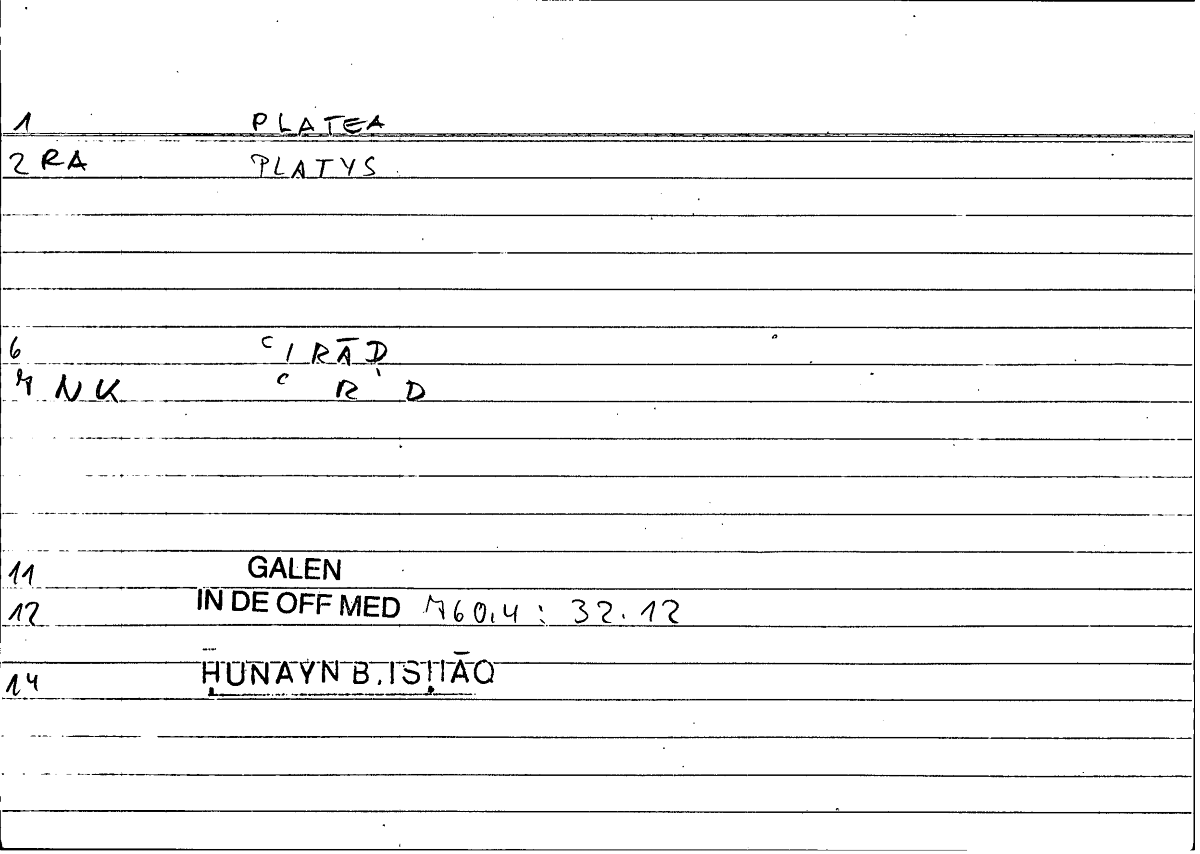 1 PLATEA
2 RA PLATYS
6 ʿIRĀD
7 NK ʿ R D
11 GALEN
12 IN DE OFF MED 760,4 : 32.12
14 ḤUNAYN B. ISḤĀQ